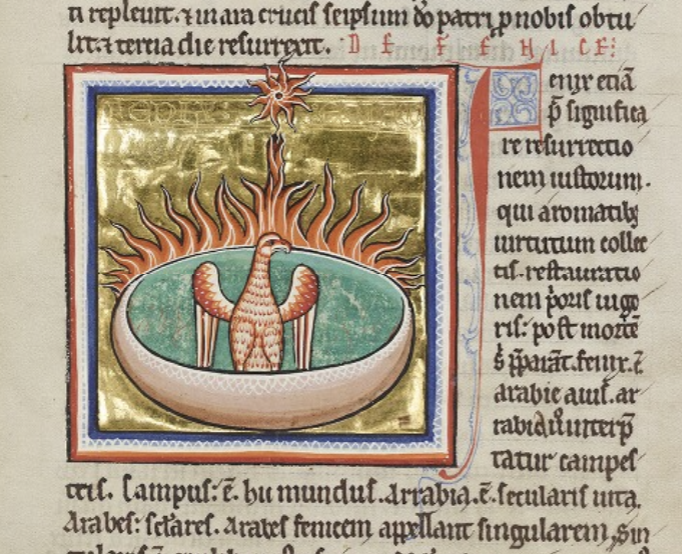 ti repleuit. ⁊ in ara crucis seipsum dō patri ꝓ nobis obtu
lit: ⁊ tercia die resurrexit. DE FENICE:
Fenix etiā
p̄ significa
re resurrectio
nem iustorum.
qui aromatibꝫ
uirtutum collec
tis. restauratio
nem p̄oris uigo
ris: post mortē
s̄ p̄parāt. fenix. ē.
arabie auis. ar
rabia ū interp̄
tatur campes
tris. Campus: ē. hic mundus. arrabia. ē. secularis uita.
Arabes: sc̄lares. arabes fenicem appellant singularem. Sin